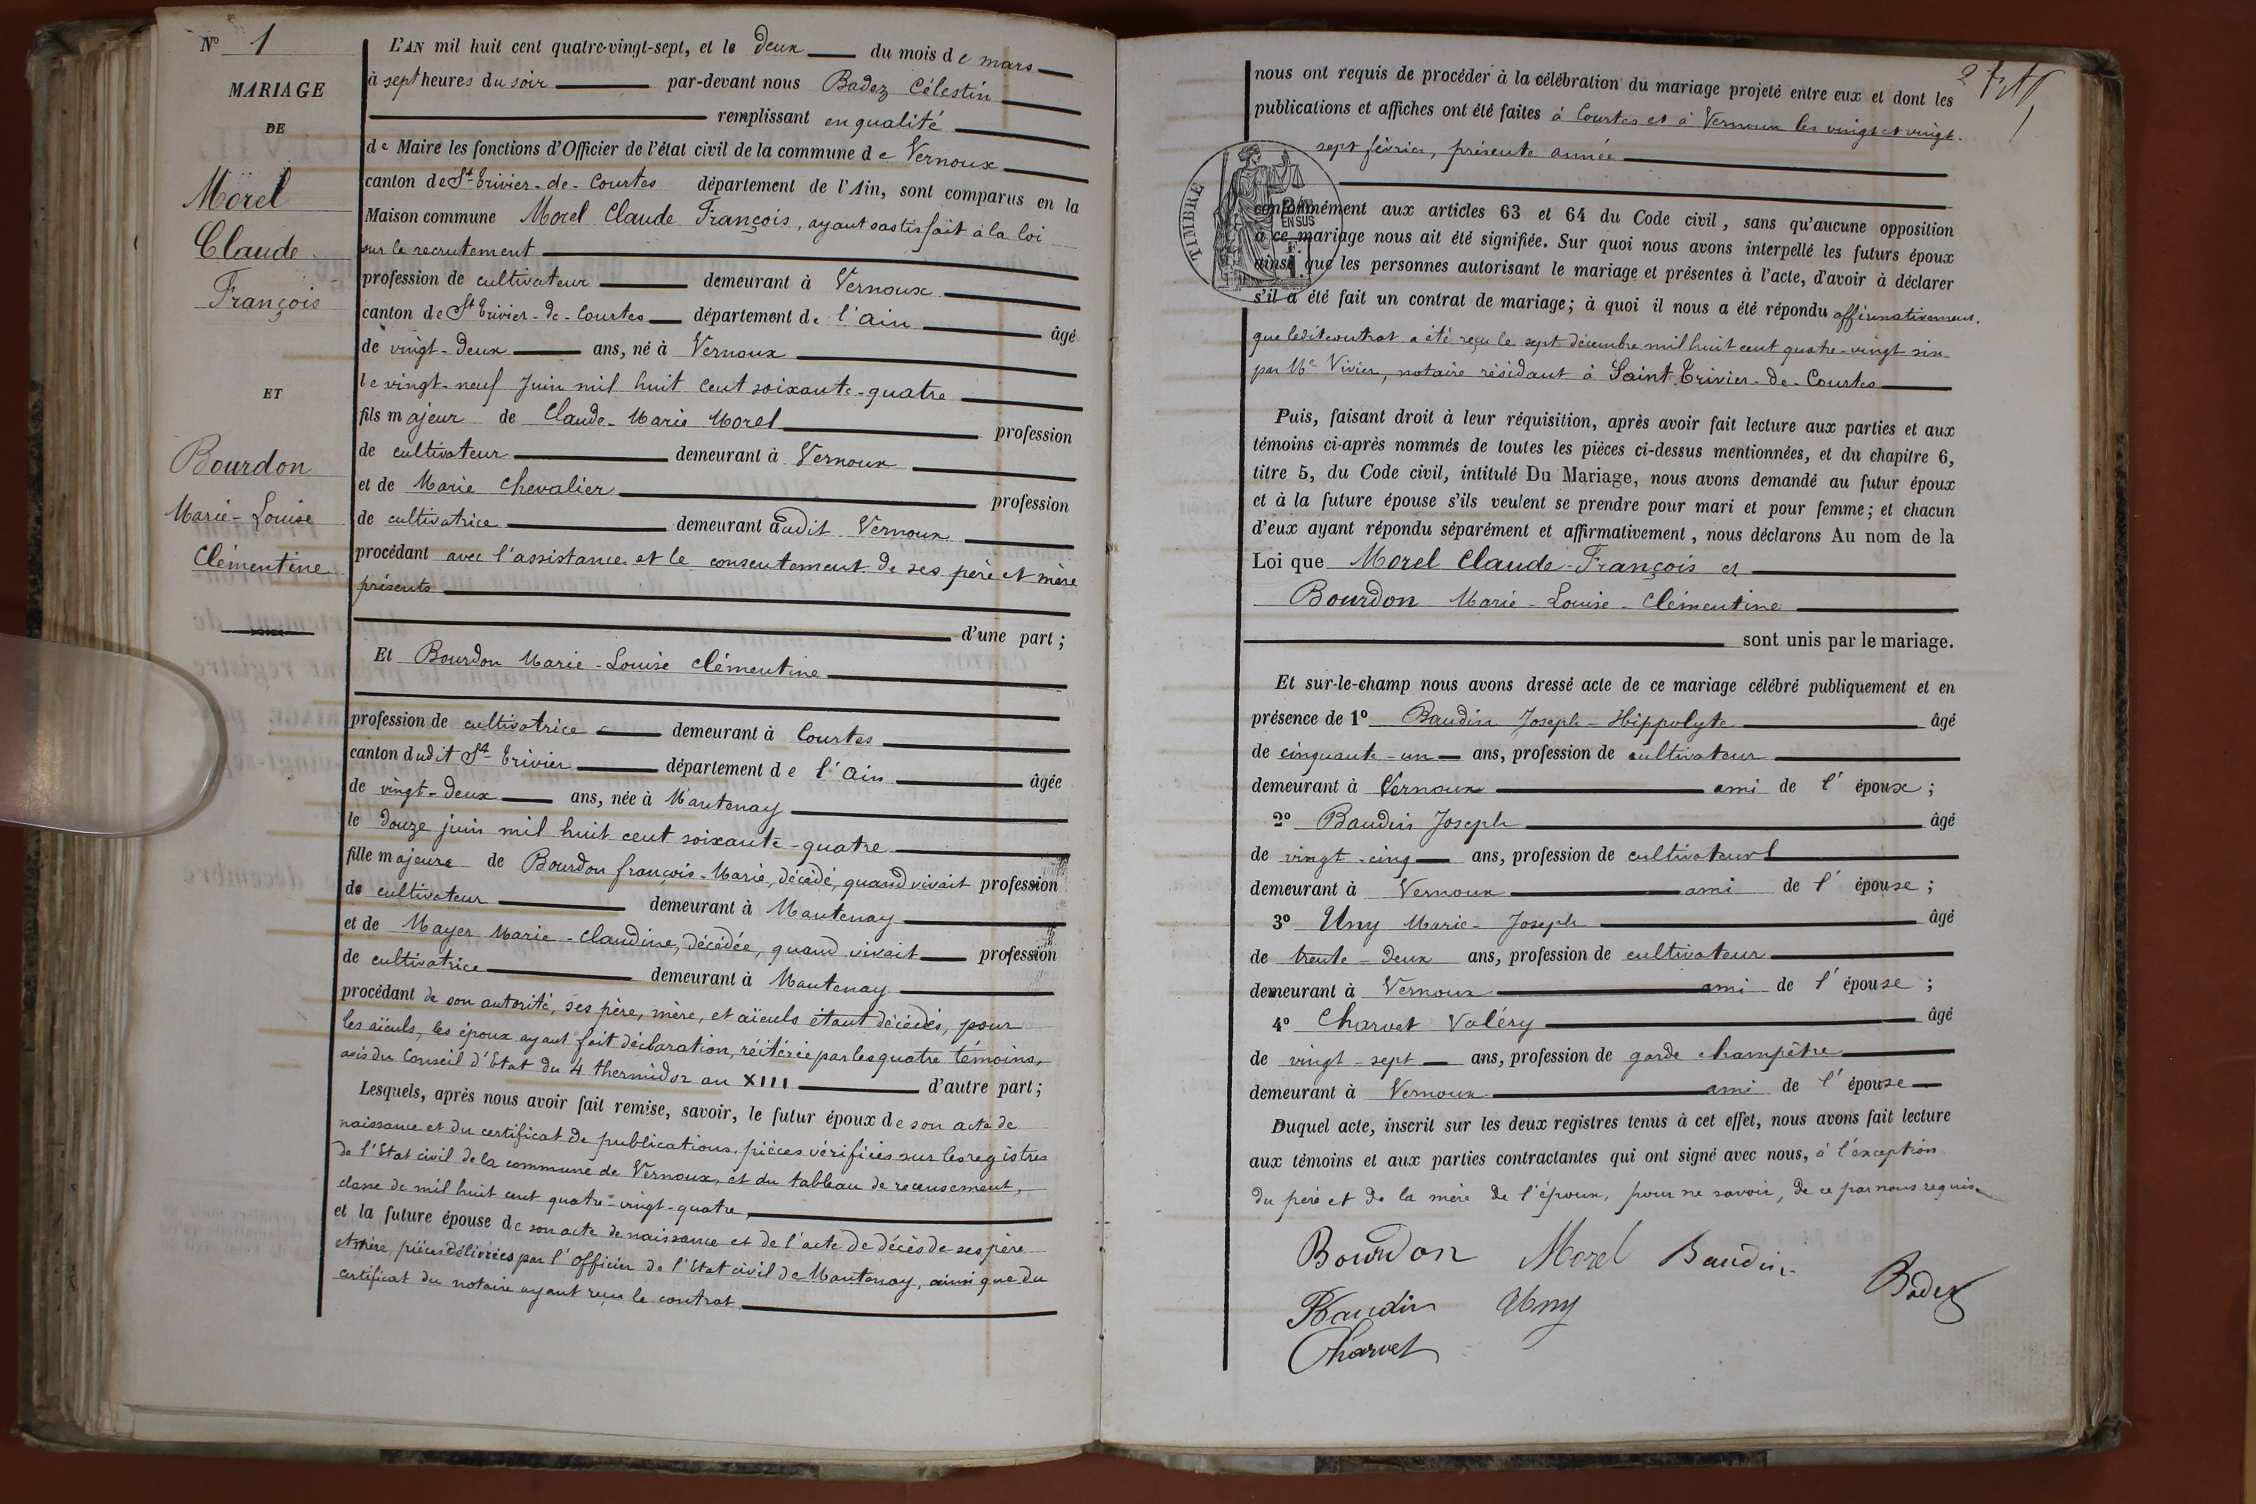 N° 1
MARIAGE
DE
Morel
Claude
François
ET
Bourdon
Marie-Louise
Clémentine
L'AN mil huit cent quatre-vingt-sept, et le deux du mois de mars
à sept heures du soir par-devant nous Badez Célestin
remplissant en qualité
de Maire les fonctions d'Officier de l'état civil de la commune de Vernoux
canton de St-Trivier-de-Courtes département de l'Ain, sont comparus en la
Maison commune Morel Claude François, ayant sastisfait à la loi
sur le recrutement
profession de cultivateur demeurant à Vernoux
canton de St Trivier-de-Courtes département de l'Ain âgé
de vingt-deux ans, né à Vernoux
le vingt-neuf Juin mil huit cent soixante-quatre
fils majeur de Claude-Marie Morel profession
de cultivateur demeurant à Vernoux
et de Marie Chevalier profession
de cultivatrice demeurant audit Vernoux
procédant avec l'assistance et le consentement de ses père et mère
présents
d'une part;
Et Bourdon Marie-Louise Clémentine
profession de cultivatrice demeurant à Courtes
canton dudit St-Trivier département de l'Ain âgée
de vingt-deux ans, née à Mantenay
le douze juin mil huit cent soixante-quatre
fille majeure de Bourdon françois-Marie, décédé, quand vivait profession
de cultivateur demeurant à Mantenay
et de Mayer Marie-Claudine, décédée, quand vivait profession
de cultivatrice demeurant à Mantenay
procédant de son autorité, ses père, mère, et aïeuls étant décédés, pour
les aïeuls, les époux ayant fait déclaration, réitérée par les quatre témoins,
avis du Conseil d'Etat du 4 thermidor an XIII d'autre part;
Lesquels, après nous avoir fait remise, savoir, le futur époux de son acte de
naissance et du certificat de publications, pièces vérifiées sur les registres
de l'Etat civil de la commune de Vernoux, et du tableau de recensement,
classe de mil huit cent quatre-vingt-quatre,
et la future épouse de son acte de naissance et de l'acte de décès de ses père
et mère, pièces délivrées par l'officier de l'Etat civil de Mantenay, ainsi que du
certificat du notaire ayant reçu le contrat
nous ont requis de procéder à la célébration du mariage projeté entre eux et dont les
publications et affiches ont été faites à Courtes et à Vernoux les vingt et vingt-
sept février, présente année
TIMBRE
2/10
EN SUS
conformément aux articles 63 et 64 du Code civil, sans qu'aucune opposition
à ce mariage nous ait été signifiée. Sur quoi nous avons interpellé les futurs époux
ainsi que les personnes autorisant le mariage et présentes à l'acte, d'avoir à déclarer
s'il a été fait un contrat de mariage; à quoi il nous a été répondu affirmativement.
que ledit contrat a été reçu le sept décembre mil huit cent quatre-vingt six
par Me Vivier, notaire résidant à Saint-Trivier-de-Courtes
Puis, faisant droit à leur réquisition, après avoir fait lecture aux parties et aux
témoins ci-après nommés de toutes les pièces ci-dessus mentionnées, et du chapitre 6,
titre 5, du Code civil, intitulé Du Mariage, nous avons demandé au futur époux
et à la future épouse s'ils veulent se prendre pour mari et pour femme; et chacun
d'eux ayant répondu séparément et affirmativement, nous déclarons Au nom de la
Loi que Morel Claude-François et
Bourdon Marie-Louise-Clémentine
sont unis par le mariage.
Et sur-le-champ nous avons dressé acte de ce mariage célébré publiquement et en
présence de 1° Baudin Joseph-Hippolyte âgé
de cinquante-un ans, profession de cultivateur
demeurant à Vernoux ami de l'époux;
2° Baudin Joseph âgé
de vingt-cinq ans, profession de cultivateur
demeurant à Vernoux ami de l'épouse;
3° Uny Marie-Joseph âgé
de trente-deux ans, profession de cultivateur
demeurant à Vernoux ami de l'épouse;
4° Charvet Valéry âgé
de vingt-sept ans, profession de garde champêtre
demeurant à Vernoux ami de l'épouse
Duquel acte, inscrit sur les deux registres tenus à cet effet, nous avons fait lecture
aux témoins et aux parties contractantes qui ont signé avec nous, à l'exception
du père et de la mère de l'époux, pour ne savoir, de ce par nous requis
Bourdon Morel Baudin
Baudin Uny Badez
Charvet